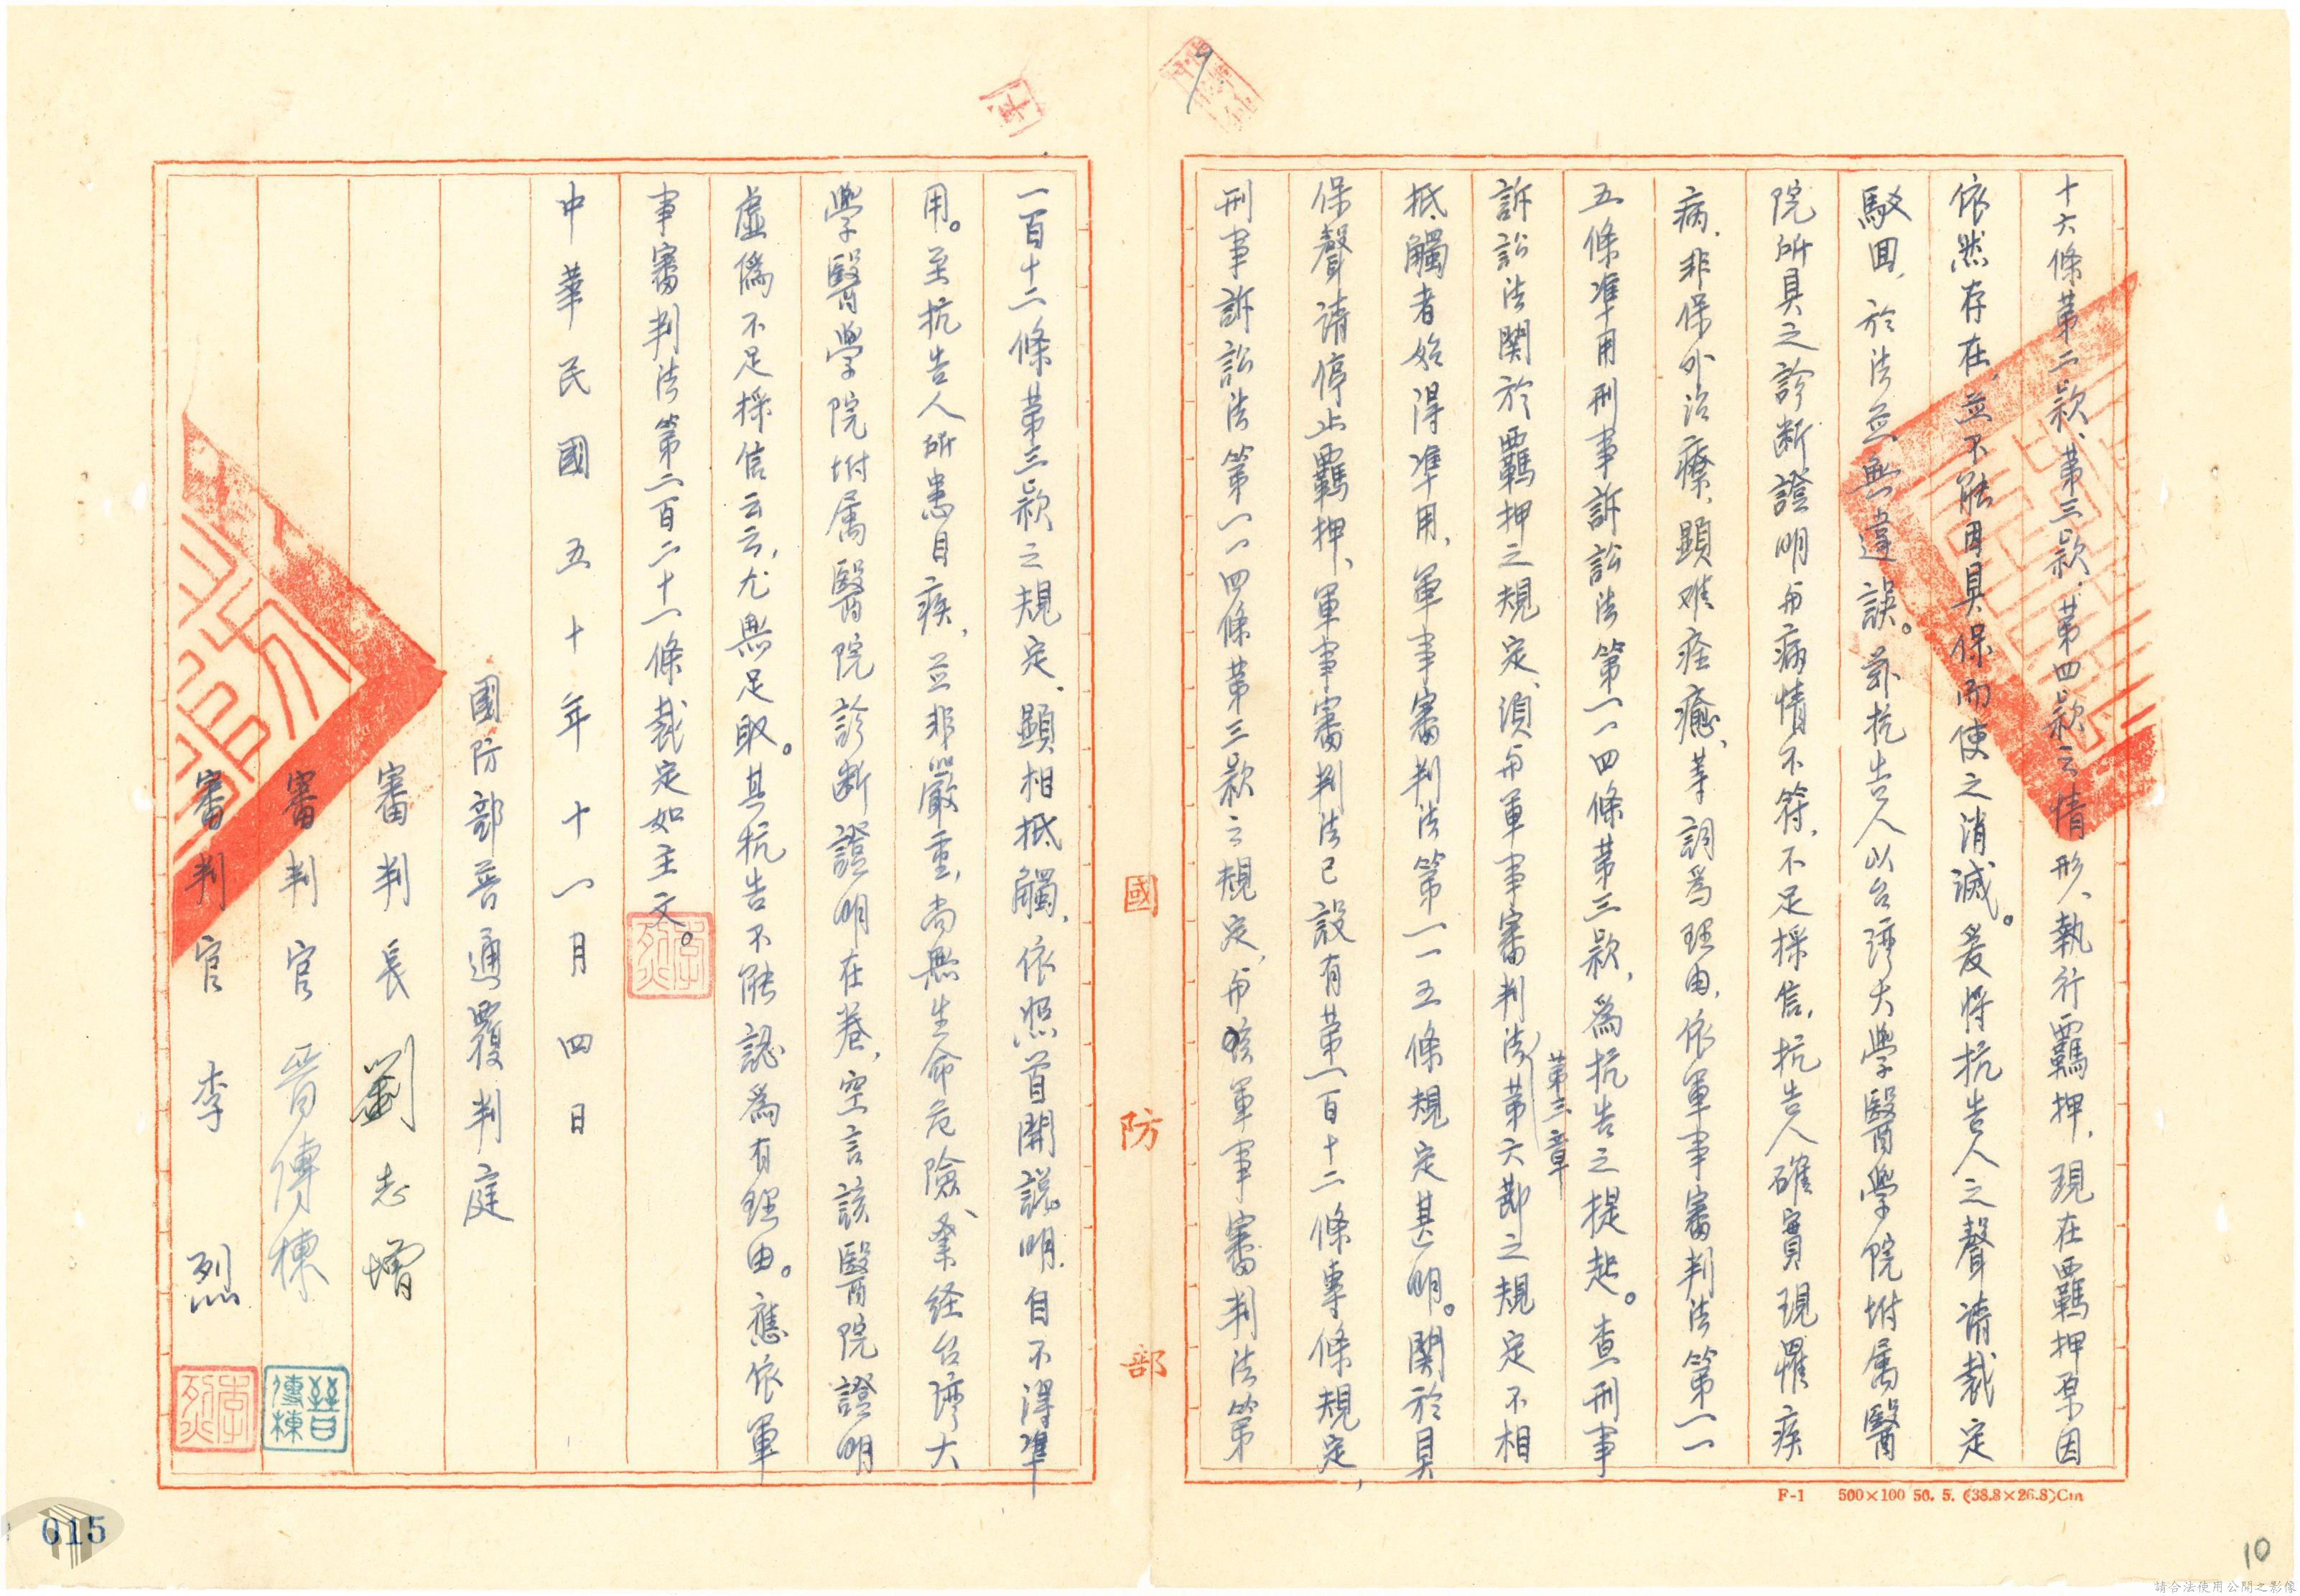 十六條第二款、第三款、第四款之情形、執行羈押，現在羈押原因
依然存在，並不能因具保而使之消滅。爰將抗告人之聲請裁定
駁回，於法並無違誤。茲抗告人以台灣大學醫學院附属醫
院所具之診断證明与病情不符，不足採信，抗告人確實現罹疾
病，非保外治療，顯难痊癒，等詞爲理由，依軍事審判法第一一
五條準用刑事訴訟法第一一四條第三款，爲抗告之提起。查刑事
訴訟法関於羈押之規定，須与軍事審判法第六節之規定不相
第三章
抵觸者始得準用，軍事審判法第一一五條規定甚明。関於具
保聲請停止羈押，軍事審判法已設有第一百十二條專條規定，
刑事訴訟法第一一四條第三款之規定，与該軍事審判法第
國防部
一百十二條第三款之規定，顯相抵觸，依照首開説明，自不得準
用。至抗告人所患目疾，並非嚴重，尚無生命危險，業経台灣大
學醫學院附属醫院診断證明在卷，空言該醫院證明
虛僞不足採信云云，尤無足取。其抗告不能認爲有理由。應依軍
事審判法第二百二十一條裁定如主文。
李烈
中華民國五十年十一月四日
國防部普通覆判庭
審判長劉志增
審判官晉傳棟
晉傳棟
審判官李烈
李烈
F-1 500×100 50. 5. (38.8×26.8)Cm
015
10
請合法使用公開之影像